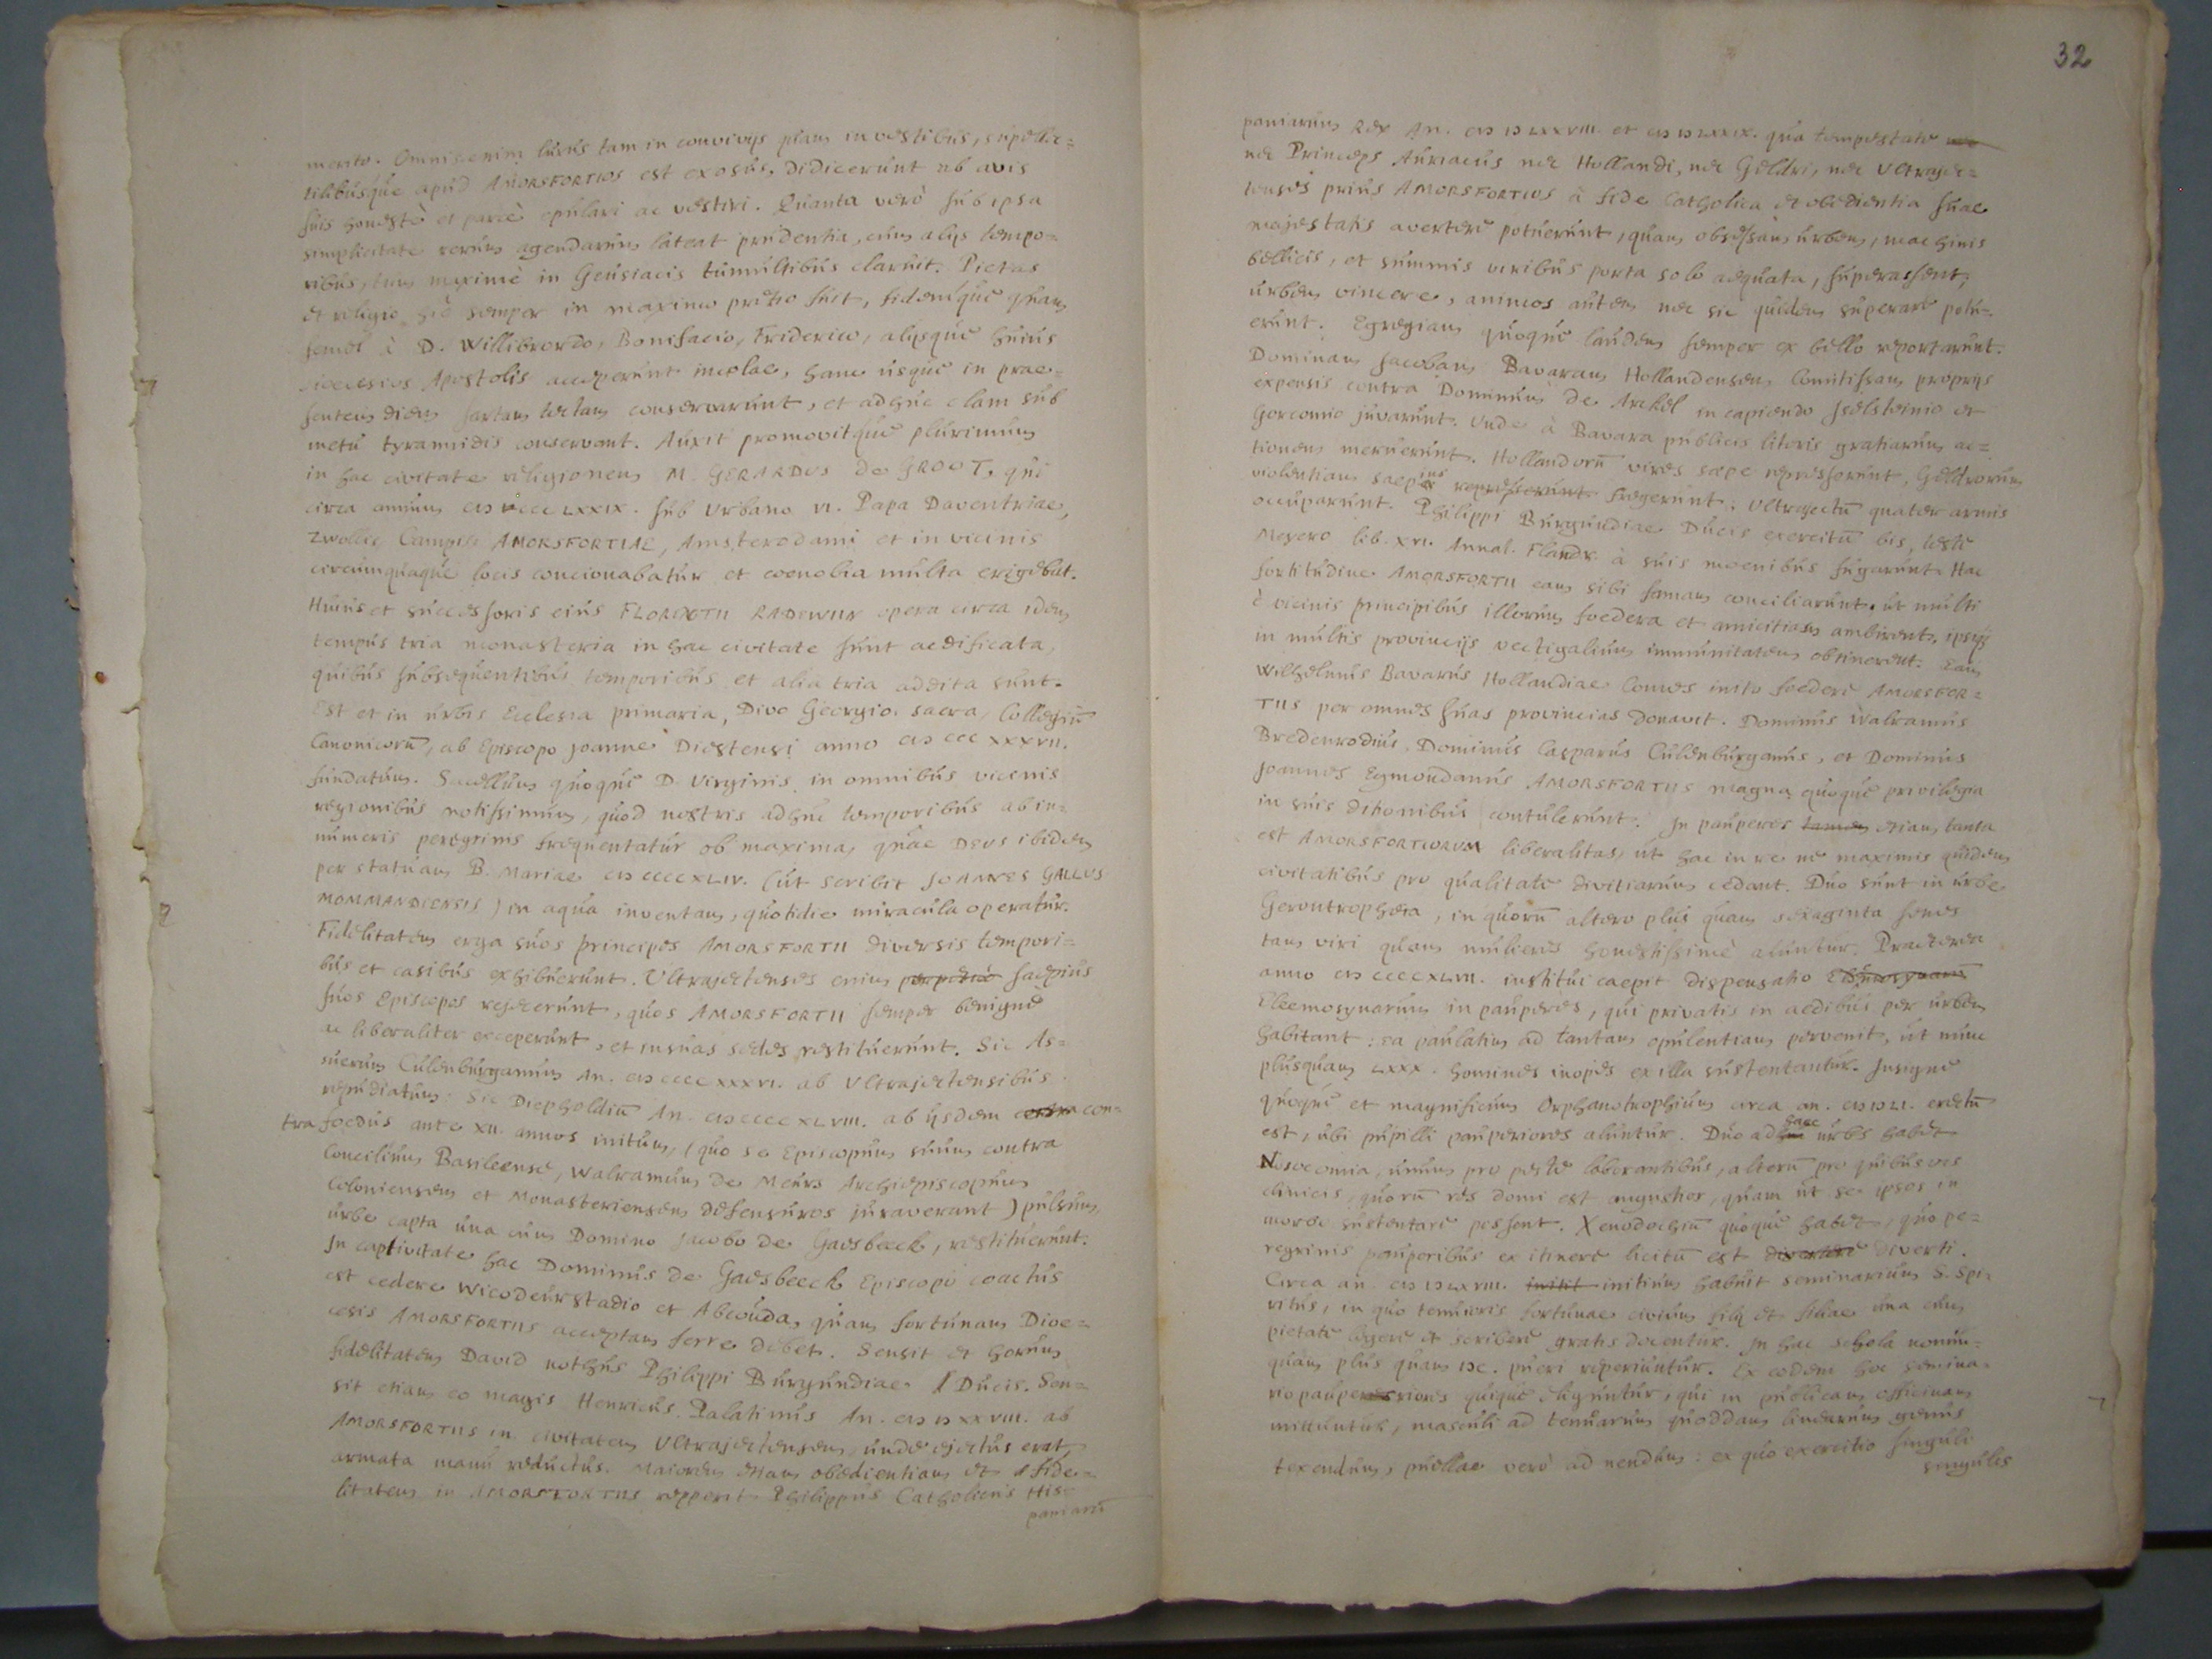 merito. Omnis enim lusus tam in convivijs quam in vestibus, supellec=
tilibusque apud AMORSFORTIOS est exosus, didicerunt ab avis
suis honestè et parcè epulari ac vestiri. Quanta verò sub ipsa
simplicitate rerum agendarum lateat prudentia, cum alijs tempo=
ribus, tum maximè in Geusiacis tumultibus claruit. Pietas
et religio hic semper in maximo pretio fuit, fidemque quam
semel à D. Willibrordo, Bonifacio, Friderico, alijsque huius
dioecesios Apostolis acceperunt incolae, hanc usque in prae=
sentem diem sartam tectam conservarunt, et adhuc clam sub
metu tyrannidis conservant. Auxit promovitque plurimum
in hac civitate religionem M. GERARDUS de GROOT, qui
circa annum CIƆ CCC LXXIX. sub Urbano VI. Papa Daventriae,
Zwollis Campis AMORSFORTIAE, Amsterodami et in vicinis
circumquaque locis concionabatur et coenobia multa erigebat.
Huius et successoris eius FLORENTII RADEWIIN opera circa idem
tempus tria monasteria in hac civitate sunt aedificata,
quibus subsequentibus temporibus et alia tria addita sunt.
Est et in urbis Ecclesia primaria, Divo Georgio sacra, Collegiū
Canonicorū, ab Episcopo Joanne Diestensi anno CIƆ CCC XXXVII.
fundatum. Sacellum quoque D. Virginis in omnibus vicinis
regionibus notissimum, quod nostris adhuc temporibus ab in=
numeris peregrinis frequentatur ob maxima, quae DEUS ibidem
per statuam B. Mariae CIƆ CCCC XLIV. (ut scribit JOHANNES GALLUS
MOMMANDIENSIS) in aqua inventam, quotidie miracula operatur.
Fidelitatem erga suos principes AMORSFORTII diversis tempori=
bus et casibus exhibuerunt. Ultrajectenses enim saepius
suos Episcopos rejecerunt, quos AMORSFORTII semper benigne
ac liberaliter exceperunt, et in suas sedes restituerunt. Sic As=
suerum Culenburganum An. CIƆ CCCC XXXVI. ab Ultrajectensibus
repudiatum: Sic Diepholdiū An. CIƆ CCCC XLVIII. ab ijsdem con=
tra foedus ante XII. annos initum, (quo se Episcopum suum contra
Concilium Basileense, Walramum de Meurs Archiepiscopum
Coloniensem et Monasteriensem defensuros juraverant) pulsum,
urbe capta una cum Domino Jacobo de Gaesbeeck, restituerunt.
In captivitate hac Dominus de Gaesbeeck Episcopo coactus
est cedere Wicodeurstadio et Abcouda, quam fortunam Dioe=
cesis AMORSFORTIIS acceptam ferre debet. Sensit et horum
fidelitatem David nothus Philippi Burgundiae Ducis. Sen=
sit etiam eo magis Henricus Palatinus An. CIƆ IƆ XXVIII. ab
AMORSFORTIIS in civitatem Ultrajectensem, unde ejectus erat,
armata manu reductus. Maiorem etiam obedientiam et fide=
litatem in AMORSFORTIIS repperit Philippus Catholicus His=
paniarū
32
paniarum Rex An. CIƆ IƆ LXXVIII. et CIƆ IƆ LXXIX. qua tempestate
nec Princeps Auriacus nec Hollandi, nec Geldri, nec Ultrajec=
tenses prius AMORSFORTIOS à fide Catholica et obedientia suae
majestatis avertere potuerunt, quam obsessam urbem, machinis
bellicis, et summis viribus porta solo aequata, superassent;
urbem vincere, animos autem nec sic quidem superare potu=
erunt. Egregiam quoque laudem semper ex bello reportarunt.
Dominam Jacobam Bavaram Hollandensem Comitissam proprijs
expensis contra Dominum de Arckel in capiendo Iselsteinio et
Gorcomio juvarunt. Unde à Bavara publicis literis gratiarum ac=
tionem meruerunt. Hollandorū vires saepe represserunt, Geldrorum
violentiam saepius represserunt fregerunt; Ultrajectū quater armis
occuparunt. Philippi Burgundiae Ducis exercitū bis, teste
Meyero lib. XVI. Annal. Flandr. à suis moenibus fugarunt. Hac
fortitudine AMORSFORTII eam sibi famam conciliarunt, ut multi
è vicinis principibus illorum foedera et amicitiam ambirent, ipsiq̃
in multis provincijs vectigalium immunitatem obtinerent. Eam
Wilhelmus Bavarus Hollandiae Comes inito foedere AMORSFOR=
TIIS per omnes suas provincias donavit. Dominus Walramus
Bredenrodius, Dominus Casparus Culenburganus, et Dominus
Joannes Egmondanus AMORSFORTIIS magna quoque privilegia
in suis ditionibus contulerunt. In pauperes tamen etiam tanta
est AMORSFORTIORUM liberalitas, ut hac in re ne maximis quidem
civitatibus pro qualitate divitiarum cedant. Duo sunt in urbe
Gerontrophaea, in quorū altero plus quam sexaginta senes
tam viri quam mulieres honestissimè aluntur. Praeterea
anno CIƆ CCCC XLVII. institui caepit dispensatio
Eleemosynarum in pauperes, qui privatis in aedibus per urbem
habitant: ea paulatim ad tantam opulentiam pervenit, ut nunc
plusquam LXXX. homines inopes ex illa sustentantur. Insigne
quoque et magnificum Orphanotrophium circa an. CIƆ IƆ LI. erectū
est, ubi pupilli pauperiores aluntur. Duo ad haec urbs habet
Nosocomia, unum pro peste laborantibus, alterū pro quibusvis
clinicis, quorū res domi est angustior, quam ut se ipsos in
morbo sustentare possent. Xenodochiū quoque habet, quo pe=
regrinis pauperibus ex itinere licitū est divertere diverti.
Circa an. CIƆ IƆ LXVIII. initit initium habuit seminarium S. Spi=
ritus, in quo tenuioris fortunae civium filij et filiae una cum
pietate legere et scribere gratis docentur. In hac schola nonnun=
quam plus quam IƆC. pueri reperiuntur. Ex eodem hoc semina=
rio pauperiores quique eliguntur, qui in publicam officinam
mittuntur, masculi ad tenuarum quoddam lindearum genus
texendum, puellae verò ad nendum: ex quo exercitio singuli
singulis